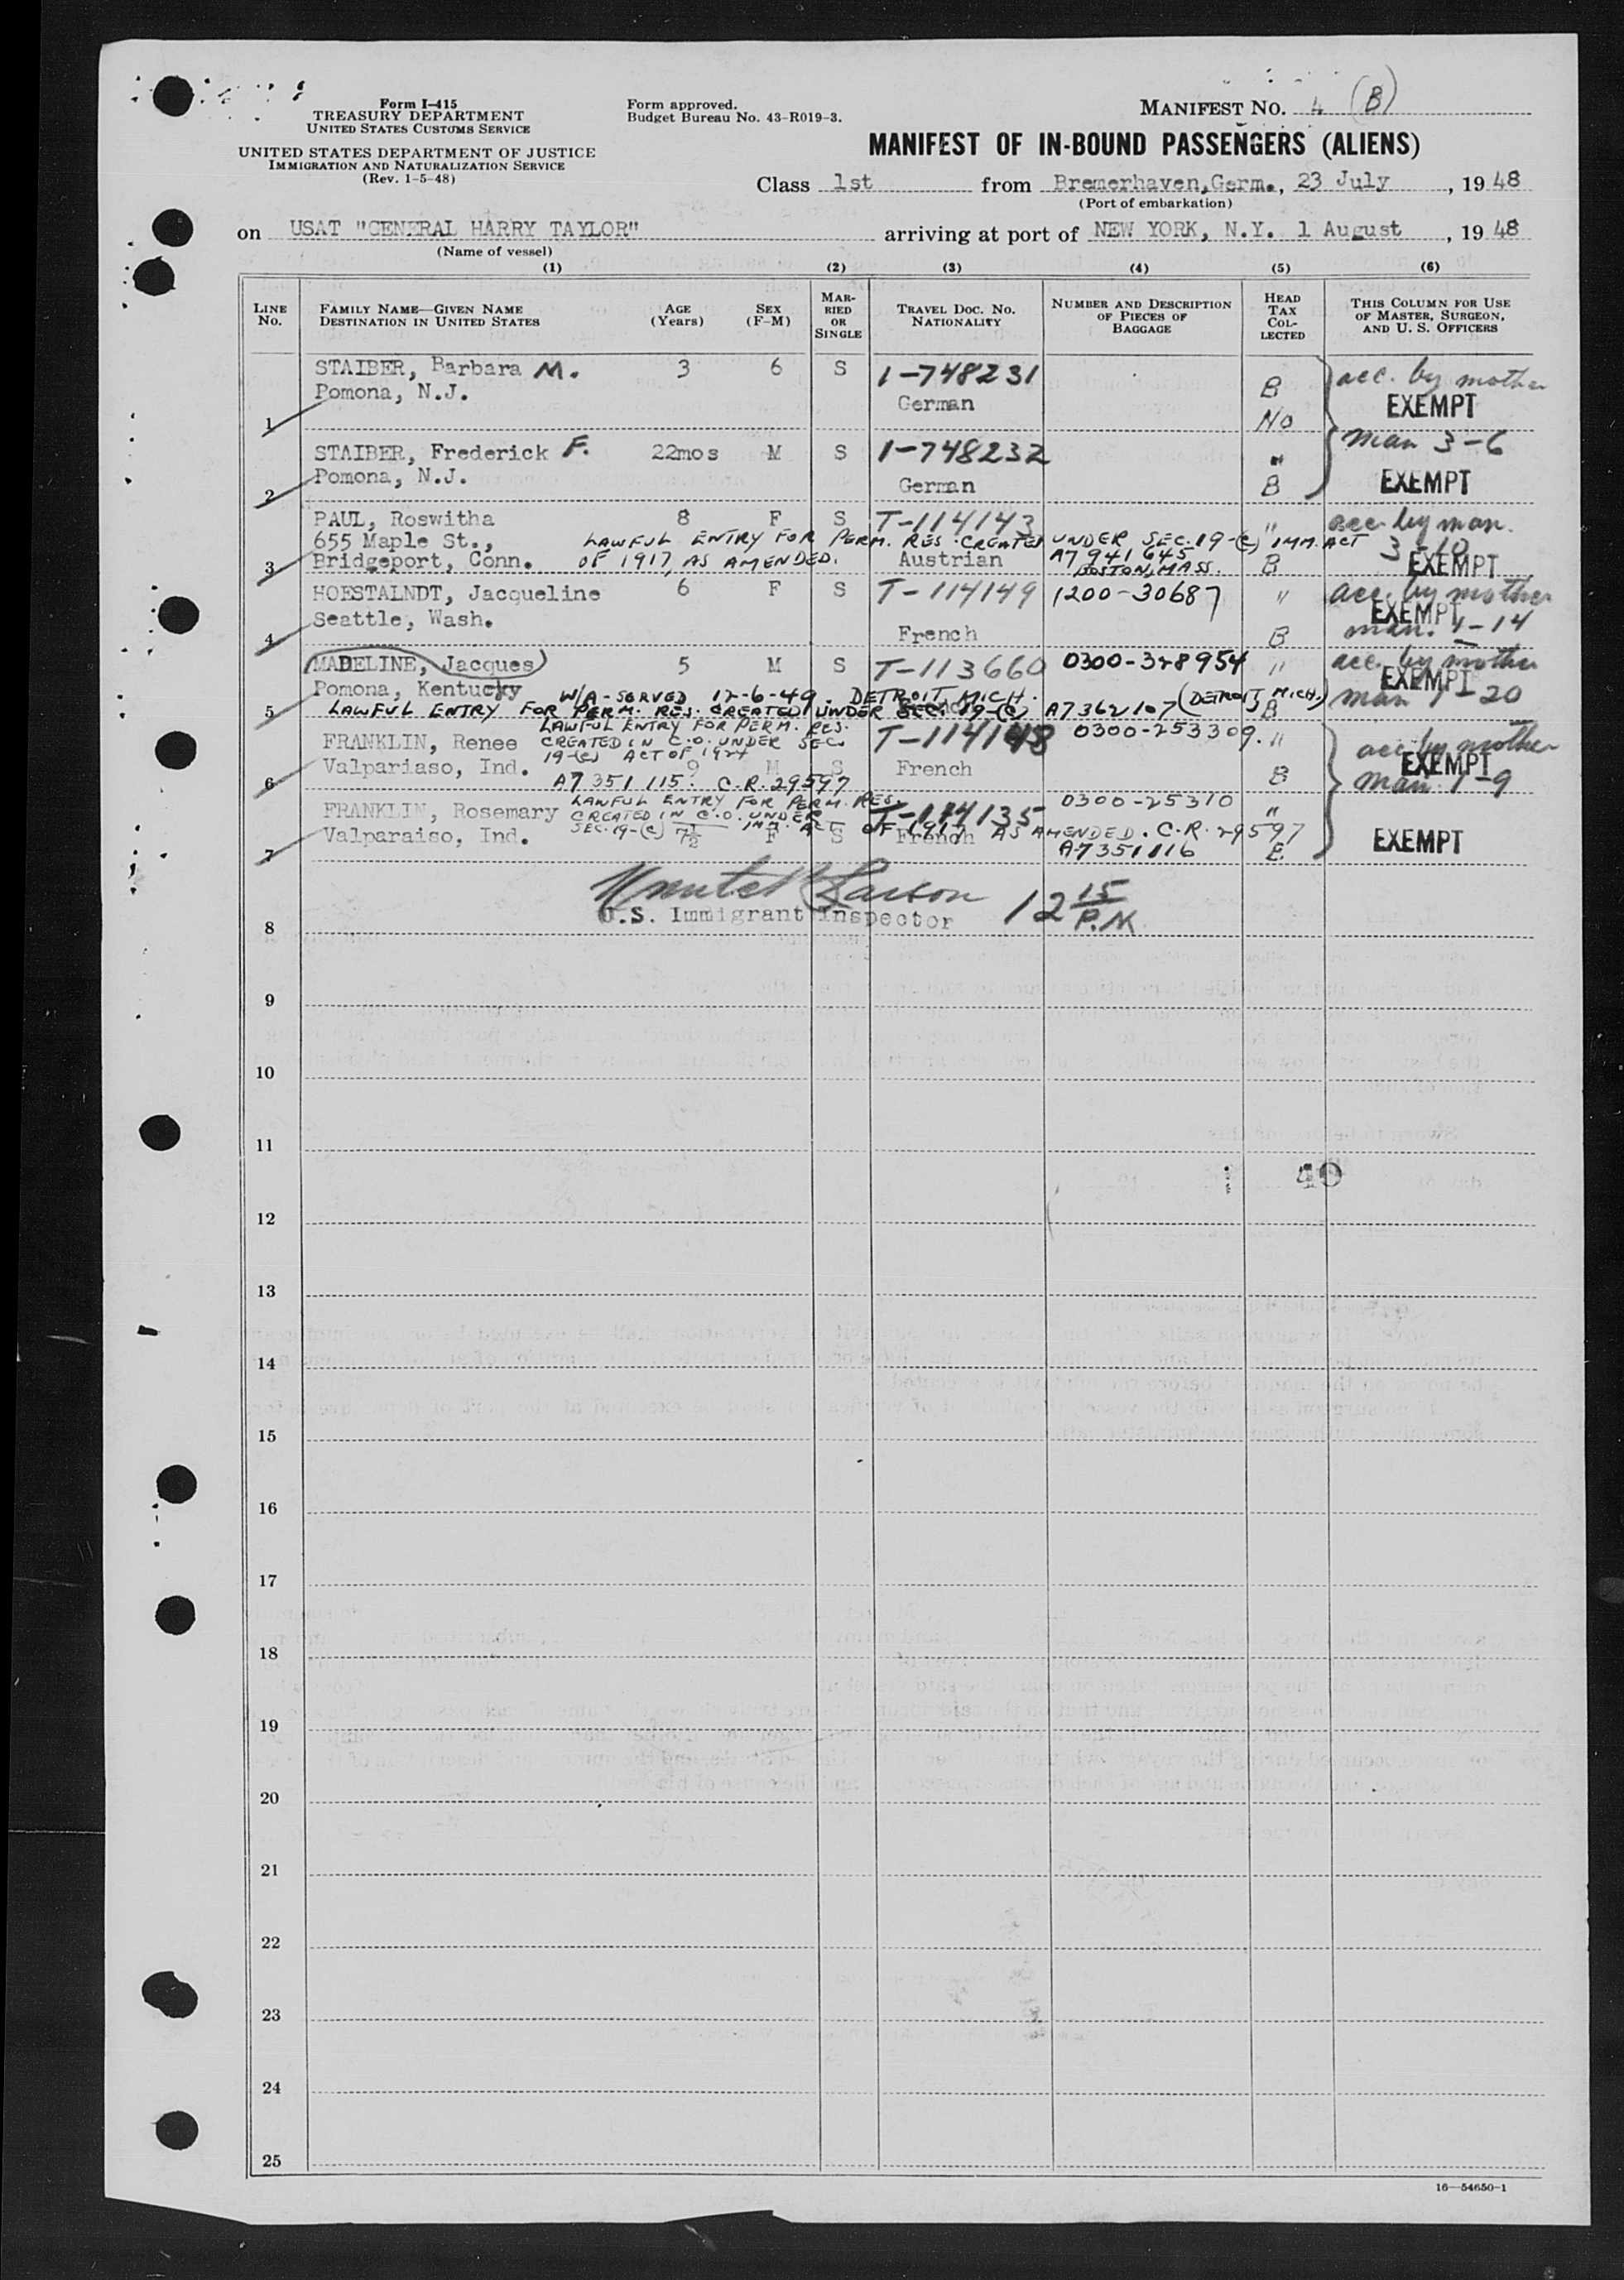 Form I-415
TREASURY DEPARTMENT
UNITED STATES CUSTOMS SERVICE
UNITED STATES DEPARTMENT OF JUSTICE
IMMIGRATION AND NATURALIZATION SERVICE
(Rev. 1-5-48)
Form approved.
Budget Bureau No. 43-R019-3.
MANIFEST NO. 4 (B)
MANIFEST OF IN-BOUND PASSENGERS (ALIENS)
Class 1st from Bremerhaven, Germ., 23 July, 1948
(Port of embarkation)
on USAT "GENERAL HARRY TAYLOR" arriving at port of NEW YORK, N.Y. 1 August, 1948
(Name of vessel)
(1) (2) (3) (4) (5) (6)
LINE No. FAMILY NAME—GIVEN NAME DESTINATION IN UNITED STATES AGE (Years) SEX (F-M) MARRIED OR SINGLE TRAVEL DOC. NO. NATIONALITY NUMBER AND DESCRIPTION OF PIECES OF BAGGAGE HEAD TAX COLLECTED THIS COLUMN FOR USE OF MASTER, SURGEON, AND U. S. OFFICERS
STAIBER, Barbara M. 3 6 S 1-748231 acc. by mother
Pomona, N.J. German B EXEMPT
1 No
STAIBER, Frederick F. 22mos M S 1-748232 " man 3-6
Pomona, N.J. German B EXEMPT
2
PAUL, Roswitha 8 F S T-114143 " acc. by man.
655 Maple St., LAWFUL ENTRY FOR PERM. RES. CREATED UNDER SEC. 19-(c) IMM. ACT 3-10
3 Bridgeport, Conn. OF 1917, AS AMENDED. Austrian A7 941 645 BOSTON, MASS. B EXEMPT
HOESTALNDT, Jacqueline 6 F S T-114149 1200-30687 " acc. by mother
Seattle, Wash. EXEMPT
4 French B man. 1-14
MADELINE, Jacques 5 M S T-113660 0300-328954 " acc. by mother
Pomona, Kentucky W/A-SERVED 12-6-49. DETROIT, MICH. EXEMPT
5 LAWFUL ENTRY FOR PERM. RES. CREATED UNDER SEC. 19-(c) A7362107 (DETROIT, MICH.) B man 1-20
LAWFUL ENTRY FOR PERM. RES.
FRANKLIN, Renee CREATED IN C.O. UNDER SEC. T-114148 0300-253309. " acc. by mother
19-(c) ACT OF 1924
Valpariaso, Ind. 9 M S French EXEMPT
6 A7 351 115. C.R. 29597 B man 1-9
LAWFUL ENTRY FOR PERM. RES.
FRANKLIN, Rosemary CREATED IN C.O. UNDER T-114135 0300-25310 "
Valparaiso, Ind. SEC. 19-(c) 7½ F IMM. ACT S OF 1917 French AS AMENDED. C.R. 29597 EXEMPT
7 A7351116 B
U.S. Immigrant Inspector 12 15 P.M.
8
9
10
11
40
12
13
14
15
16
17
18
19
20
21
22
23
24
25
16—54650-1